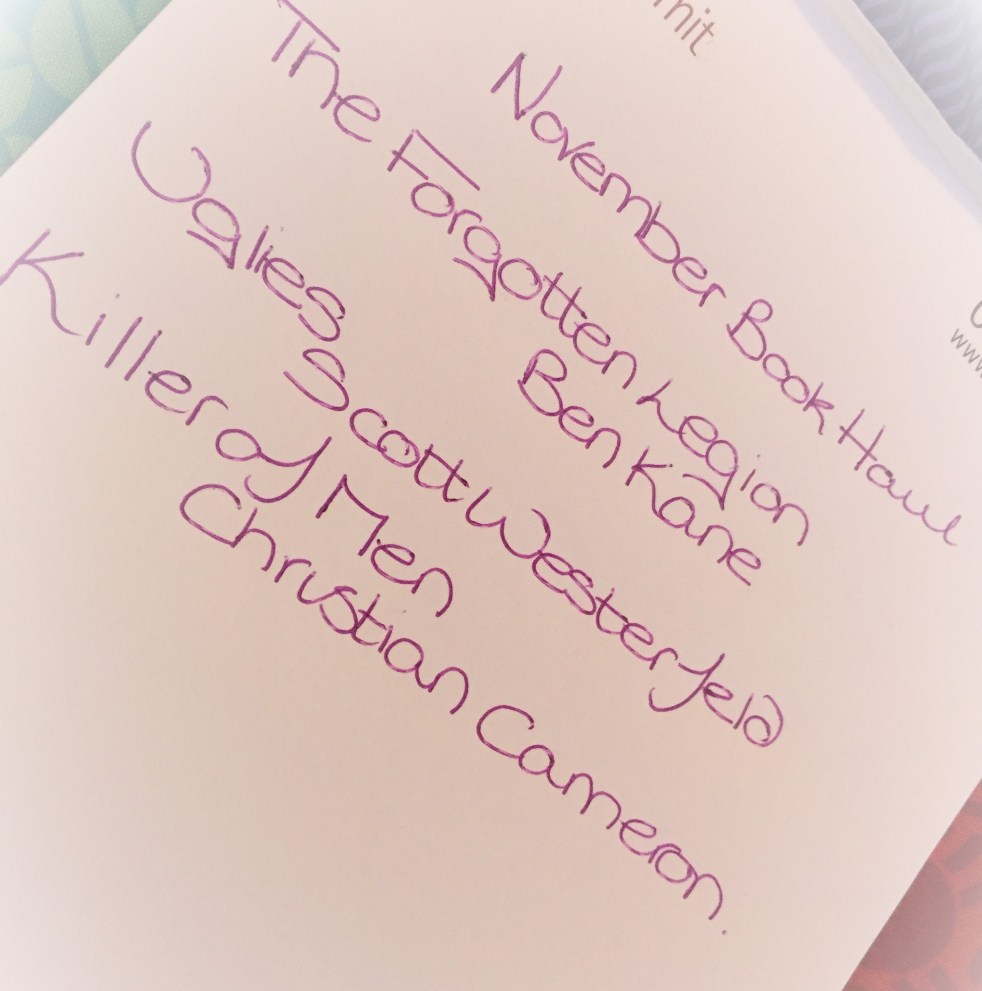 mit
www
November Book Haul
The Forgotten Legion
Ben Kane
Uglies
Scott Westerfeld
Killer of Men
Christian Cameron.